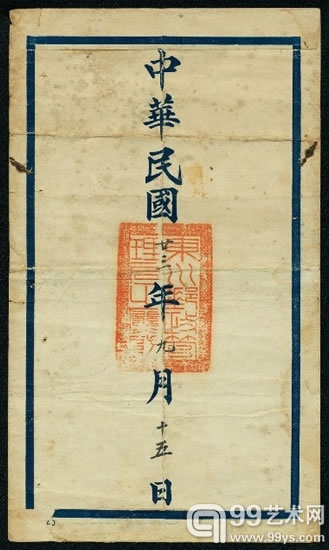 中華民國廿三年九月十五日
99艺术网
www.99ys.com